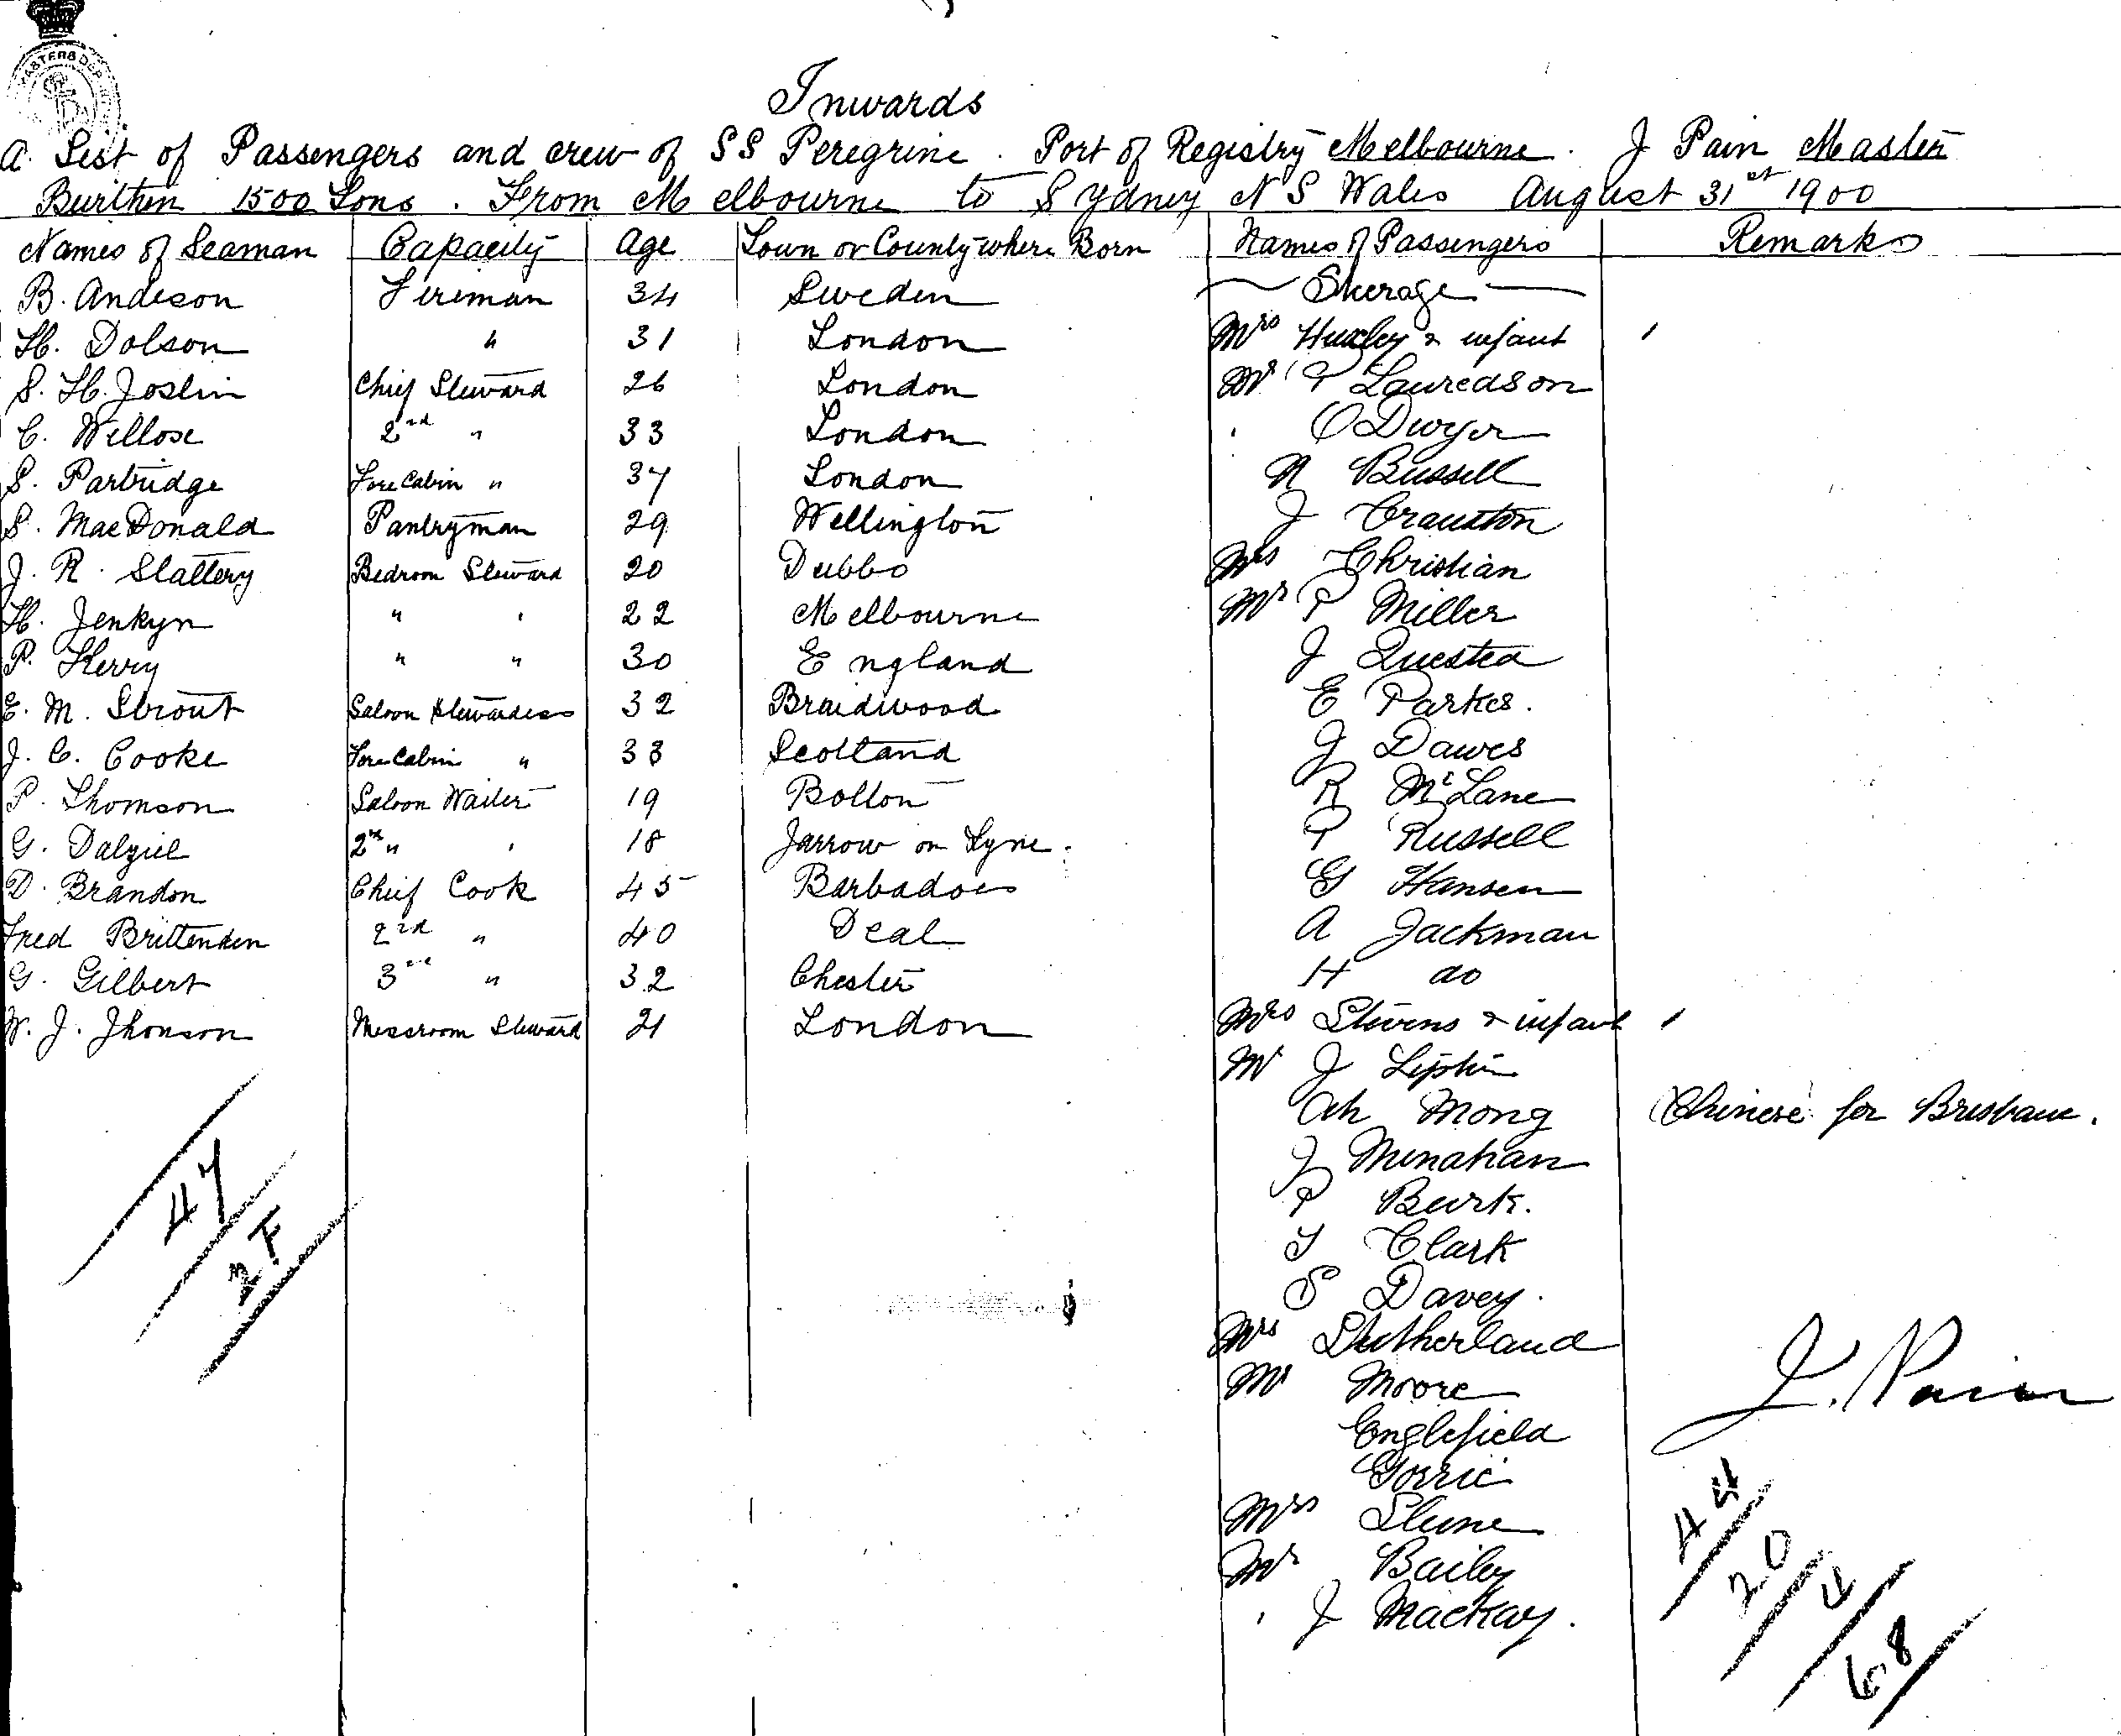 Inwards
A List of Passengers and crew of SS Peregrine. Port of Registry Melbourne. J Pain Master
Burthen 1500 Tons. From Melbourne to Sydney N S Wales August 31st 1900
Names of Seaman Capacity Age Town or County where Born Names of Passengers Remarks
B. Andeson Fireman 34 Sweden Steerage
H. Dolson " 31 London Mrs Huxley & infant 1
S. H. Joslin Chief Steward 26 London Mr P Lauredson
C. Wellose 2nd " 33 London O Dwyer
S. Partridge Fore Cabin " 37 London N Bussell
S. MacDonald Pantryman 29 Wellington J Cranston
J. R. Slattery Bedroom Steward 20 Dubbo Mrs Christian
H. Jenkyn " " 22 Melbourne Mr P Miller
P. Kerry " " 30 England J Quested
E. M. Strout Saloon Stewardess 32 Braidwood E Parkes.
J. C. Cooke Fore Cabin " 33 Scotland J Dawes
P. Thomson Saloon Waiter 19 Bolton R McLane
G. Dalziel 2nd " " 18 Jarrow on Tyne. P Russell
D. Brandon Chief Cook 45 Barbadoes G Hansen
Fred Brittenden 2nd " 40 Deal A Jackman
G. Gilbert 3rd " 32 Chester H do
W. J. Jhonson Messroom Steward 21 London Mrs Stevens & infant 1
Mr J Lipkin
Ah Mong Chinese for Brisbane.
J Monahan
47 P Burk.
2F T Clark
S Davey.
Mrs Sutherland
Mr Moore J. Pain
Englefield
Gorrie
Mrs Slune 44
Mr Bailey 20
J Mackay. 4
68